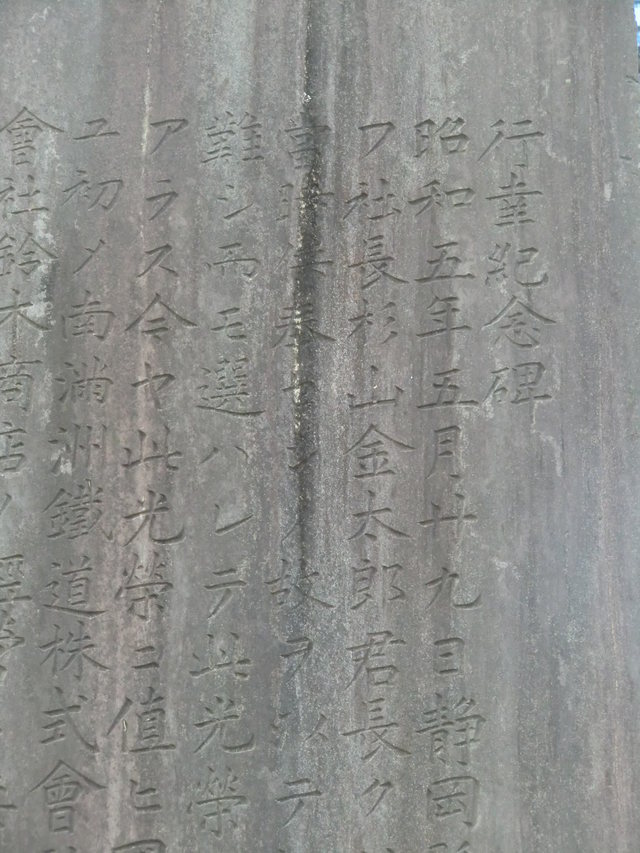 行幸紀念碑
昭和五年五月廿九日静岡
フ社長杉山金太郎君長ク
當時 故ヲ以テ
難シ而モ選ハレテ此光榮
アラス今ヤ此光榮ニ値ヒ
ユ初メ南滿洲鐵道株式會
會社鈴木商店ノ經營